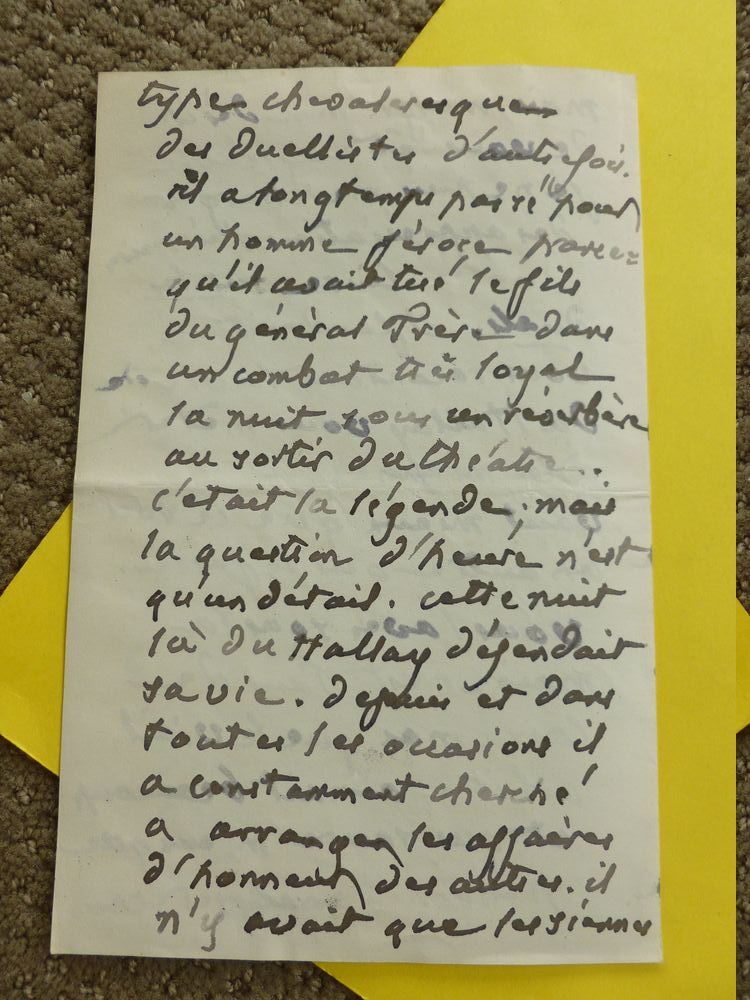 type chevaleresque
des duellistes d'autrefois.
il a longtemps passé pour
un homme féroce parce=
qu'il avait tué le fils
du général Frère dans
un combat très loyal
la nuit sous un réverbère
au sortir du théâtre..
c'était la légende; mais
la question d'heure n'est
qu'un détail. cette nuit
là du Hallay défendait
sa vie. depuis et dans
toutes les occasions il
a constamment cherché
a arranger les affaires
d'honneur des autres. il
n'y avait que les siennes